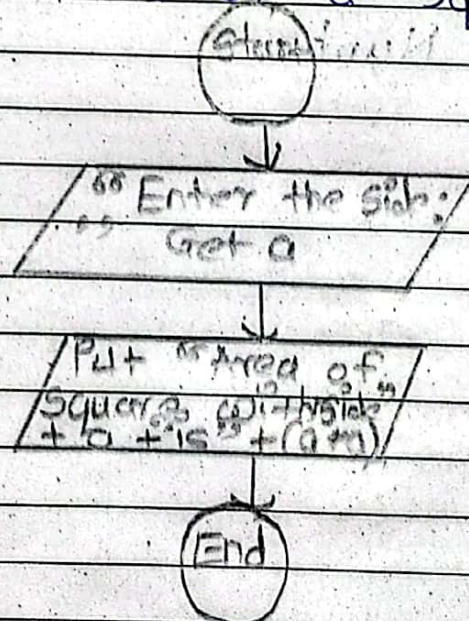 Start
“Enter the side:
” Get a
Put “Area of
Square with side”
+ a + “is” + (a*a)
End